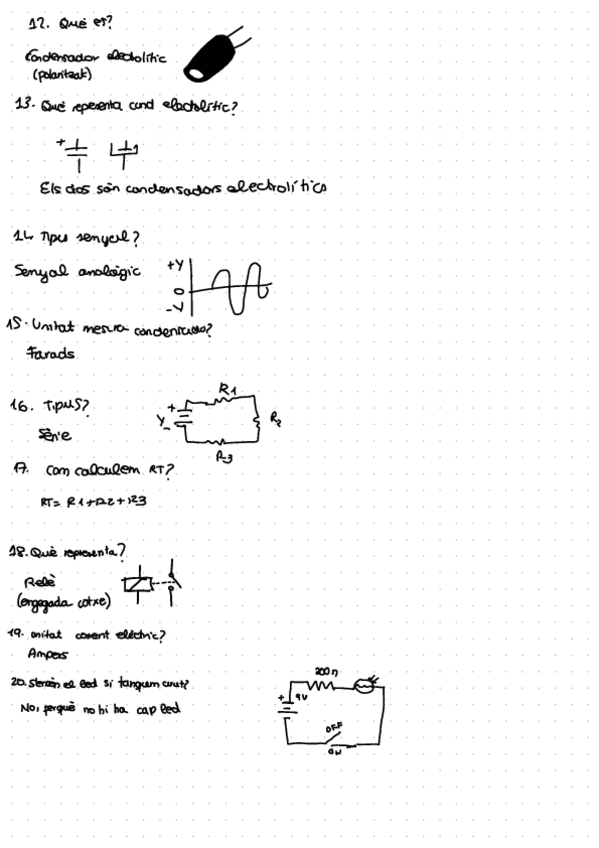 12. Què és?
Condensador electolític
(polaritzat)
13. Què representa cond electolític?
+
Els dos són condensadors electrolítics
14. Tipus senyal?
Senyal analògic
+V
0
-V
15. Unitat mesura condensador?
Farads
16. Tipus?
Sèrie
R1
+
V
-
R2
R3
17. Com calculem RT?
RT= R1+R2+R3
18. Què representa?
Relè
(engegada cotxe)
19. unitat corent elèctric?
Ampers
20. el led si tanquem
No, perquè no hi ha cap led
+
9V
OFF
ON